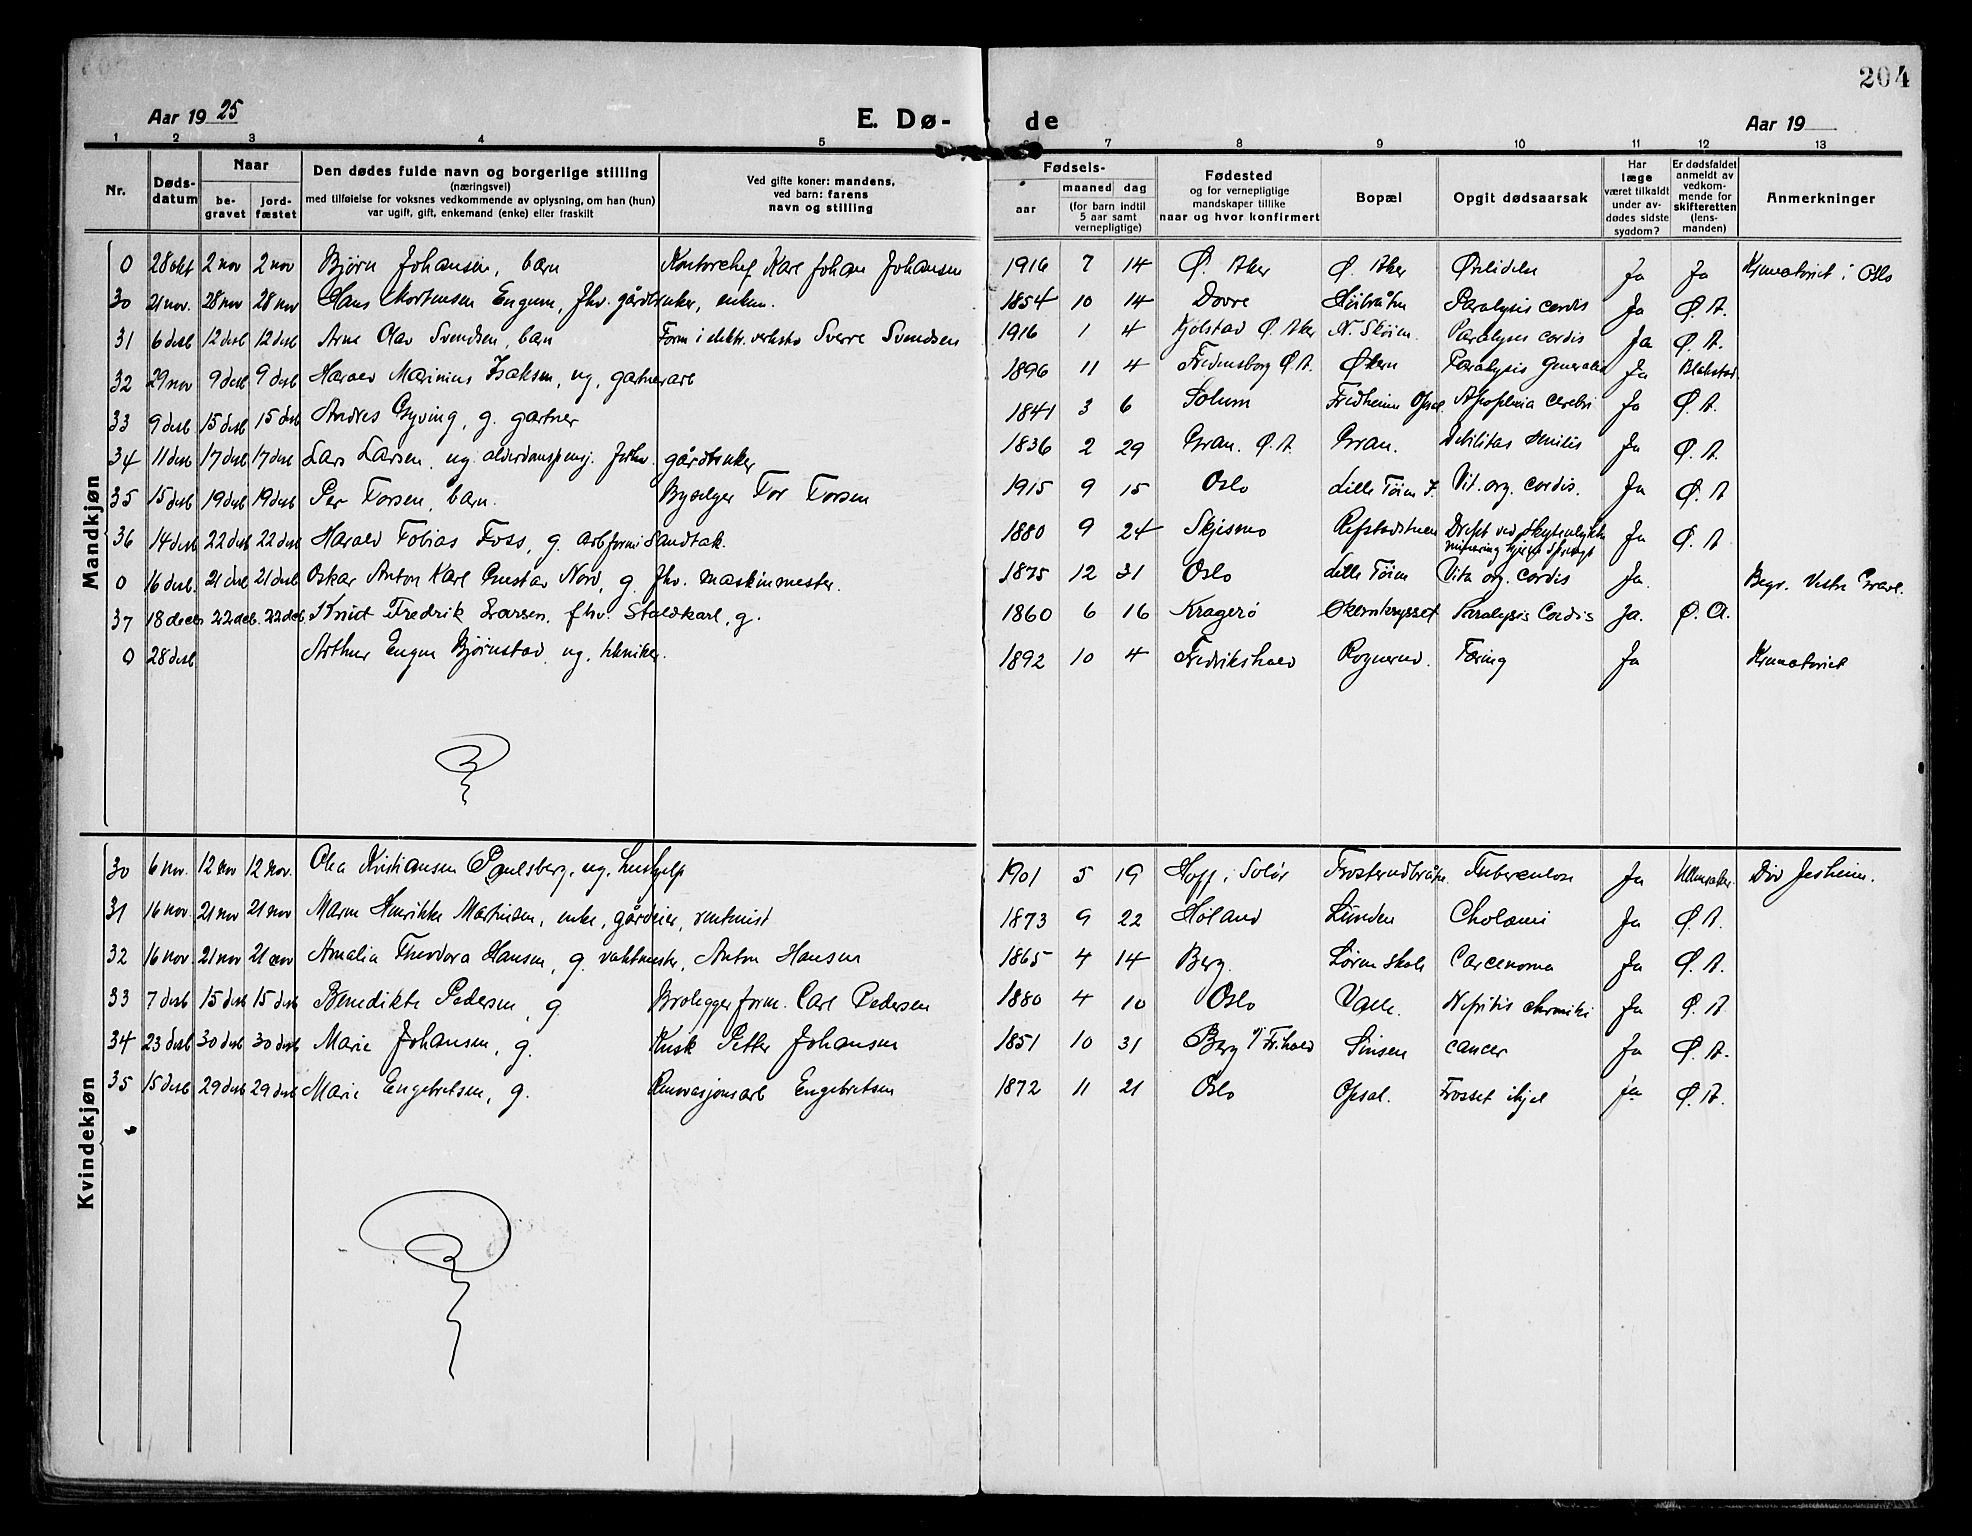 204
Aar 1925 E. Dø- de Aar 19
1 2 3 4 5 7 8 9 10 11 12 13
Nr.
Døds-
datum
Naar
be-
gravet
jord-
fæstet
Den dødes fulde navn og borgerlige stilling
(næringsvei)
med tilføielse for voksnes vedkommende av oplysning, om han (hun)
var ugift, gift, enkemand (enke) eller fraskilt
Ved gifte koner: mandens,
ved barn: farens
navn og stilling
Fødsels-
aar
maaned dag
(for barn indtil
5 aar samt
vernepligtige)
Fødested
og for vernepligtige
mandskaper tillike
naar og hvor konfirmert
Bopæl
Opgit dødsaarsak
Har
læge
været tilkaldt
under av-
dødes sidste
sygdom?
Er dødsfaldet
anmeldt av
vedkom-
mende for
skifteretten
(lens-
manden)
Anmerkninger
Mandkjøn
0 28 okt 2 nov 2 nov Bjørn Johansen, barn Kontorchef Karl Johan Johansen 1916 7 14 Ø. Aker Ø. Aker Ja Ja Krematoriet i Oslo
30 21 nov. 28 nov 28 nov Hans Mortensen Engum, fhv. gårdbruker, enkem. 1854 10 14 Dovre Høibråten Paralysis cordis Ja Ø. A.
31 6 desb 12 desb 12 desb Arne Olav Svendsen, barn Form i elektr. verksted Sverre Svendsen 1916 1 4 Kjølstad Ø. Aker N. Skøien Paralyses cordis Ja Ø. A.
32 29 nov 9 desb 9 desb Harald Marinius Isaksen, ug, gartnerarb 1896 11 4 Fredensborg Ø. A. Økern Paralysis Generalis Ja Blakstad
33 9 desb 15 desb 15 desb Andres Gyving, g. gartner 1841 3 6 Solum Fridheim Opsal Apoplexia cerebri Ja Ø. A.
34 11 desb 17 desb 17 desb Lars Larsen, ug. alderdomspensj. forhv. gårdbruker 1836 2 29 Gran. Ø. A. Gran. Debilitas senilis Ja Ø. A.
35 15 desb 19 desb 19 desb Per Torsen, barn. Byselger Tor Torsen 1915 9 15 Oslo Lille Tøien Vit. org. cordis. Ja Ø. A
36 14 desb 22 desb 22 desb Harald Tobias Foss, g. arbform i Sandtak. 1880 9 24 Skjesmo Refstadstuen Dræpt ved Skytenlykke
minering Ja Ø. A
0 16 desb. 21 desb 21 desb Oskar Anton Karl Gustav Nord, g. fhv. maskinmester. 1875 12 31 Oslo Lille Tøien Vita org. cordis Ja. Begr. Vestre Gravl.
37 18 deces 22 deb. 22 deb. Knut Fredrik Larsen, fhv. Staldkarl, g. 1860 6 16 Kragerø Økernkrysset Paralysis Cordis Ja. Ø. A.
0 28 desb Arthur Eugen Bjørnstad, ug, tekniker. 1892 10 4 Fredrikshald Rognerud. Tæring Ja Krematoriet
Kvindekjøn
30 6 nov. 12 nov 12 nov. Olea Kristiansen Paulsberg, ug, hushjelp 1901 5 19 Hoff i Solør Frosterudbråten Tuberculose Ja Ullensaker. Død Jesheim.
31 16 nov. 21 nov 21 nov Maren Henrikke Martinsen, enke, gårdeier, rentenist 1873 9 22 Høland Lunden Cholæmi Ja Ø. A.
32 16 nov. 21 nov 21 nov Amalia Theodora Hansen, g. vaktmester, Anton Hansen 1865 4 14 Berg. Løren skole Carcenoma Ja Ø. A.
33 7 desb 15 desb 15 desb Benedikte Pedersen, g Brolegger form. Carl Pedersen 1880 4 10 Oslo Valle. Nefritis chroniki Ja Ø. A
34 23 desb 30 desb 30 desb Marie Johansen, g. Kusk Petter Johansen 1851 10 31 Berg v/ Fr.hald Sinsen cancer Ja Ø. A.
35 15 desb 29 desb 29 desb Marie Engebretsen, g. Renovasjonsarb Engebretsen 1872 11 21 Oslo Opsal. Frosset ihjel ja Ø. A.